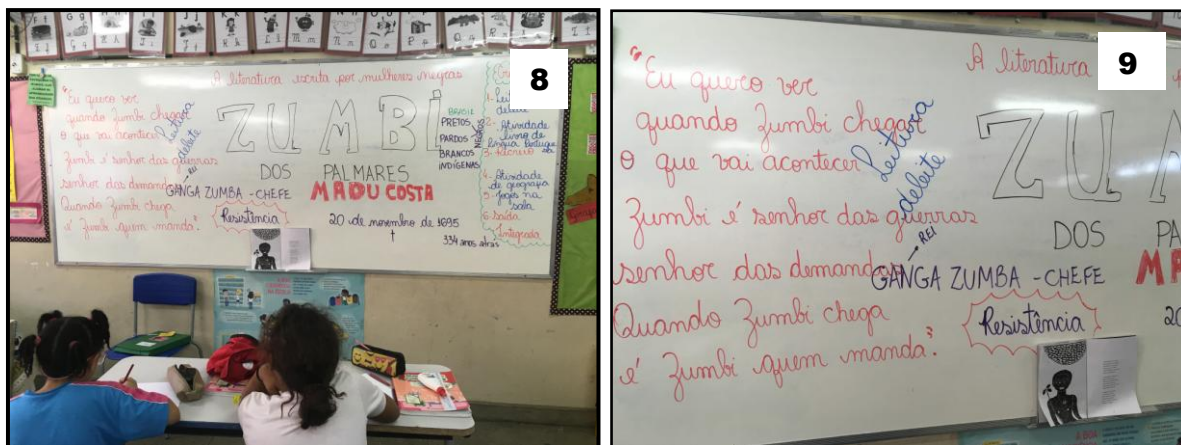 8
A literatura escrita por mulheres negras
"Eu quero ver
quando Zumbi chegar
o que vai acontecer
Zumbi é senhor das guerras
senhor das demandas
Quando Zumbi chega
é Zumbi quem manda".
Leitura
deleite
ZUMBI
DOS PALMARES
→ REI
GANGA ZUMBA - CHEFE
MADU COSTA
Resistência
20 de novembro de 1695
334 anos atrás
BRASIL
PRETOS
PARDOS
NEGROS
BRANCOS
INDÍGENAS
1- Leitura
deleite
2- Atividade
livro de
língua portuguesa
4- Atividade
de geografia
5- Jogos na
sala
6- saída
Integrada
9
A literatura
"Eu quero ver
quando Zumbi chegar
o que vai acontecer
Zumbi é senhor das guerras
senhor das demandas
Quando Zumbi chega
é Zumbi quem manda".
Leitura
deleite
ZU
DOS PA
→ REI
GANGA ZUMBA - CHEFE
MA
Resistência
20